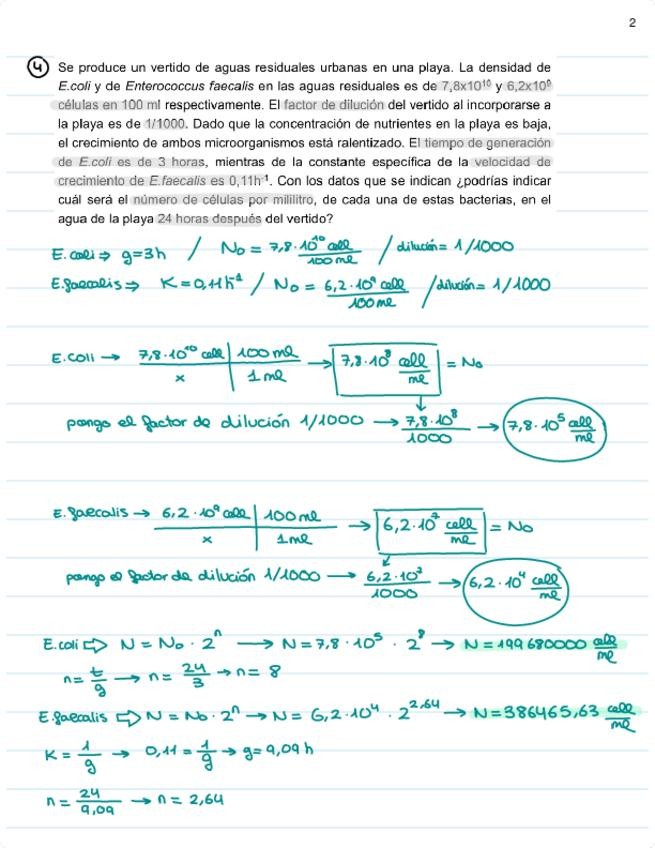 2
4 Se produce un vertido de aguas residuales urbanas en una playa. La densidad de
E.coli y de Enterococcus faecalis en las aguas residuales es de 7,8x10¹⁰ y 6,2x10⁹
células en 100 ml respectivamente. El factor de dilución del vertido al incorporarse a
la playa es de 1/1000. Dado que la concentración de nutrientes en la playa es baja,
el crecimiento de ambos microorganismos está ralentizado. El tiempo de generación
de E.coli es de 3 horas, mientras de la constante específica de la velocidad de
crecimiento de E.faecalis es 0,11h⁻¹. Con los datos que se indican ¿podrías indicar
cuál será el número de células por mililitro, de cada una de estas bacterias, en el
agua de la playa 24 horas después del vertido?
E. coli ⇒ g=3h / N₀ = 7,8·10¹⁰ cell / 100 ml / dilución = 1/1000
E. faecalis ⇒ K=0,11h⁻¹ / N₀ = 6,2·10⁹ cell / 100 ml / dilución = 1/1000
E. coli → 7,8·10¹⁰ cell | 100 ml → 7,8·10⁸ cell/ml = N₀
x | 1 ml
pongo el factor de dilución 1/1000 → 7,8·10⁸ / 1000 → 7,8·10⁵ cell/ml
E. faecalis → 6,2·10⁹ cell | 100 ml → 6,2·10⁷ cell/ml = N₀
x | 1 ml
pongo el factor de dilución 1/1000 → 6,2·10⁷ / 1000 → 6,2·10⁴ cell/ml
E. coli ⇒ N = N₀ · 2ⁿ → N = 7,8·10⁵ · 2⁸ → N = 199680000 cell/ml
n = t/g → n = 24/3 → n = 8
E. faecalis ⇒ N = N₀ · 2ⁿ → N = 6,2·10⁴ · 2^2,64 → N = 386465,63 cell/ml
K = 1/g → 0,11 = 1/g → g = 9,09 h
n = 24/9,09 → n = 2,64